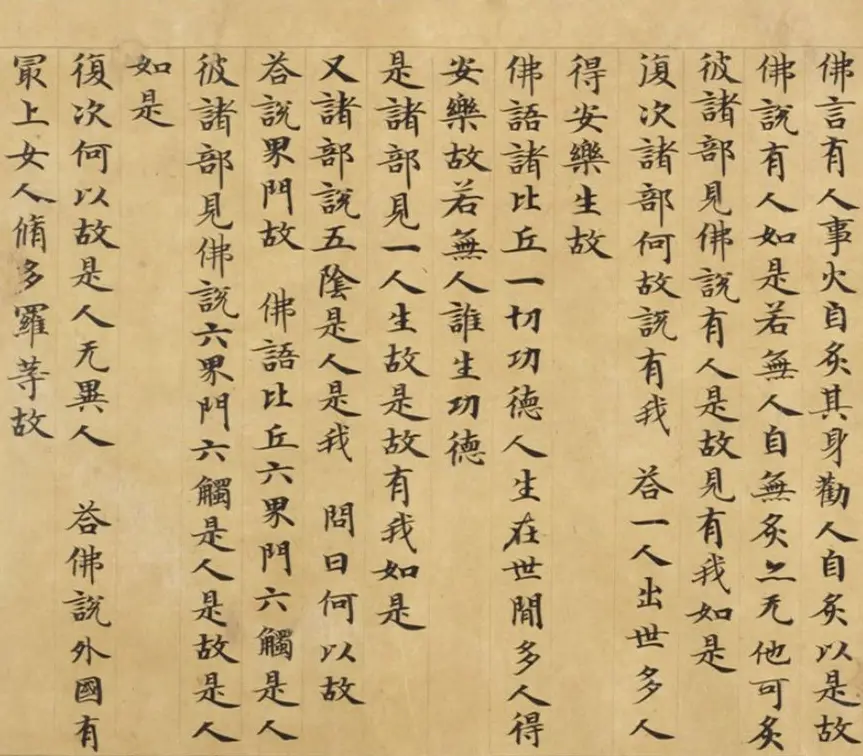 佛言有人事火自炙其身勸人自炙以是故
佛說有人如是若無人自無炙亦无他可炙
彼諸部見佛說有人是故見有我如是
復次諸部何故說有我　荅一人出世多人
得安樂生故
佛語諸比丘一切功德人生在世閒多人得
安樂故若無人誰生功德
是諸部見一人生故是故有我如是
又諸部說五陰是人是我　問曰何以故
荅說界門故　佛語比丘六界門六觸是人
彼諸部見佛說六界門六觸是人是故是人
如是
復次何以故是人无異人　荅佛說外國有
冣上女人脩多羅等故